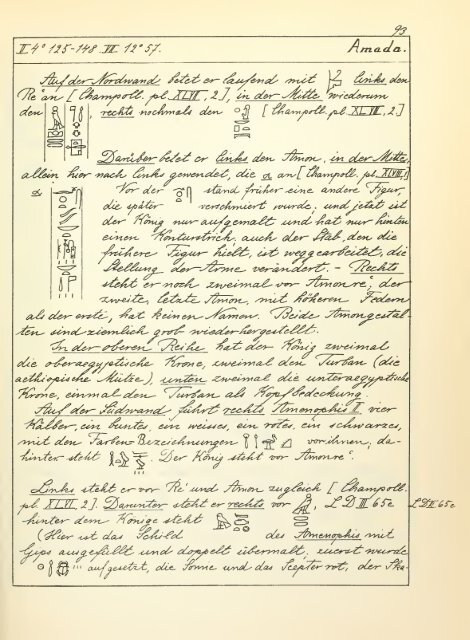 93
II. 4° 125-148. VII. 12° 57. Amada.
Auf der Nordwand betet er laufend mit links den
Re' an [Champoll. pl. XLVII, 2], in der Mitte wiederum
den , rechts nochmals den [Champoll. pl. XLVII, 2.]
Darüber betet er links den Amon, in der Mitte,
allein hier nach links gewendet, die α an [Champoll. pl. XLVII, 1]
α Vor der stand früher eine andere Figur,
die später verschmiert wurde, und jetzt ist
der König nur aufgemalt und hat nur hinten
einen Konturstrich, auch der Stab, den die
frühere Figur hielt, ist weggearbeitet, die
Stellung der Arme verändert. – Rechts
steht er noch zweimal vor Amonre', der
zweite, letzte Amon, mit höheren Federn
als der erste, hat keinen Namen. Beide Amongestal-
ten sind ziemlich grob wiederhergestellt.
In der oberen Reihe hat der König zweimal
die oberaegyptische Krone, zweimal den Turban (die
aethiopische Mütze), unten zweimal die unteraegyptische
Krone, einmal den Turban als Kopfbedeckung.
Auf der Südwand führt rechts Amenophis II. vier
Kälber, ein buntes, ein weisses, ein rotes, ein schwarzes,
mit den Farben-Bezeichnungen vor ihnen, da-
hinter steht . Der König steht vor Amonre'.
Links steht er vor Re' und Amon zugleich [Champoll.
pl. XLVI, 2]. Darunter steht er rechts vor , L D III 65c L D III 65c
hinter dem Könige steht
(Hier ist das Schild des Amenophis mit
Gips ausgefüllt und doppelt übermalt, zuerst wurde
aufgesetzt, die Sonne und das Scepter rot, der Ska-